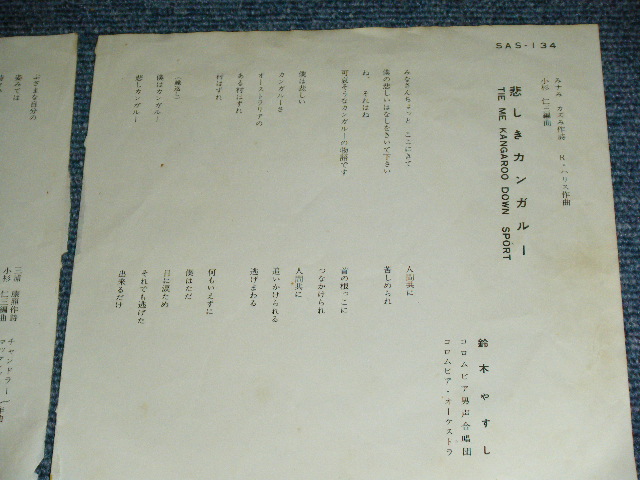 SAS-134
悲しきカンガルー
TIE ME KANGAROO DOWN SPORT
みナみ・カズみ作詩
R・ハリス作曲
小杉仁三編曲
鈴木やすし
コロムビア男声合唱団
コロムビア・オーケストラ
みなさんちょっと ここにきて
僕の悲しいはなしをきいて下さい
ね、それはね
可哀そうなカンガルーの物語です
僕は悲しい
カンガルーさ
オーストラリアの
ある村はずれ
村はずれ
(繰返し)
僕はカンガルー
悲しカンガルー
人間共に
苦しめられ
首の根っこに
つなかけられ
人間共に
追いかけられる
逃げまわる
何もいえずに
僕はただ
目に涙ため
それでも逃げた
出来るだけ
ぶざまな自分の
姿みては
三浦康照作詩
小杉仁三編曲
チャンドラー